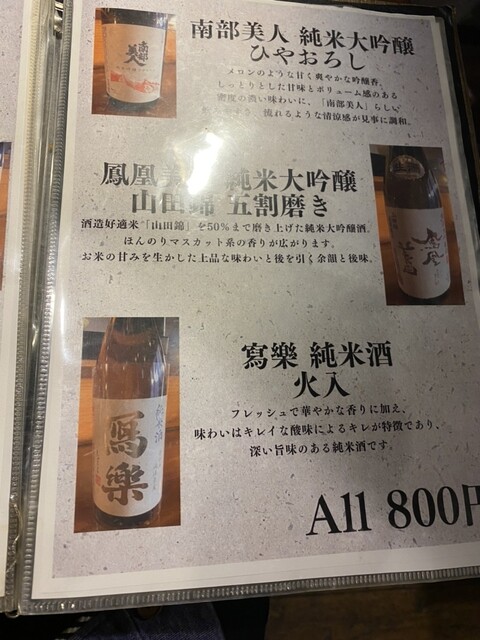 南部美人 純米大吟醸
ひやおろし
メロンのような甘く爽やかな吟醸香。
しっとりとした甘味とボリューム感のある
密度の濃い味わいに、「南部美人」らしい
流れるような清涼感が見事に調和。
南部
美人
鳳凰美 純米大吟醸
山田錦 五割磨き
酒造好適米「山田錦」を50%まで磨き上げた純米大吟醸酒。
ほんのりマスカット系の香りが広がります。
お米の甘みを生かした上品な味わいと後を引く余韻と後味。
寫樂 純米酒
火入
フレッシュで華やかな香りに加え、
味わいはキレイな酸味によるキレが特徴であり、
深い旨味のある純米酒です。
純米酒
寫樂
All 800円